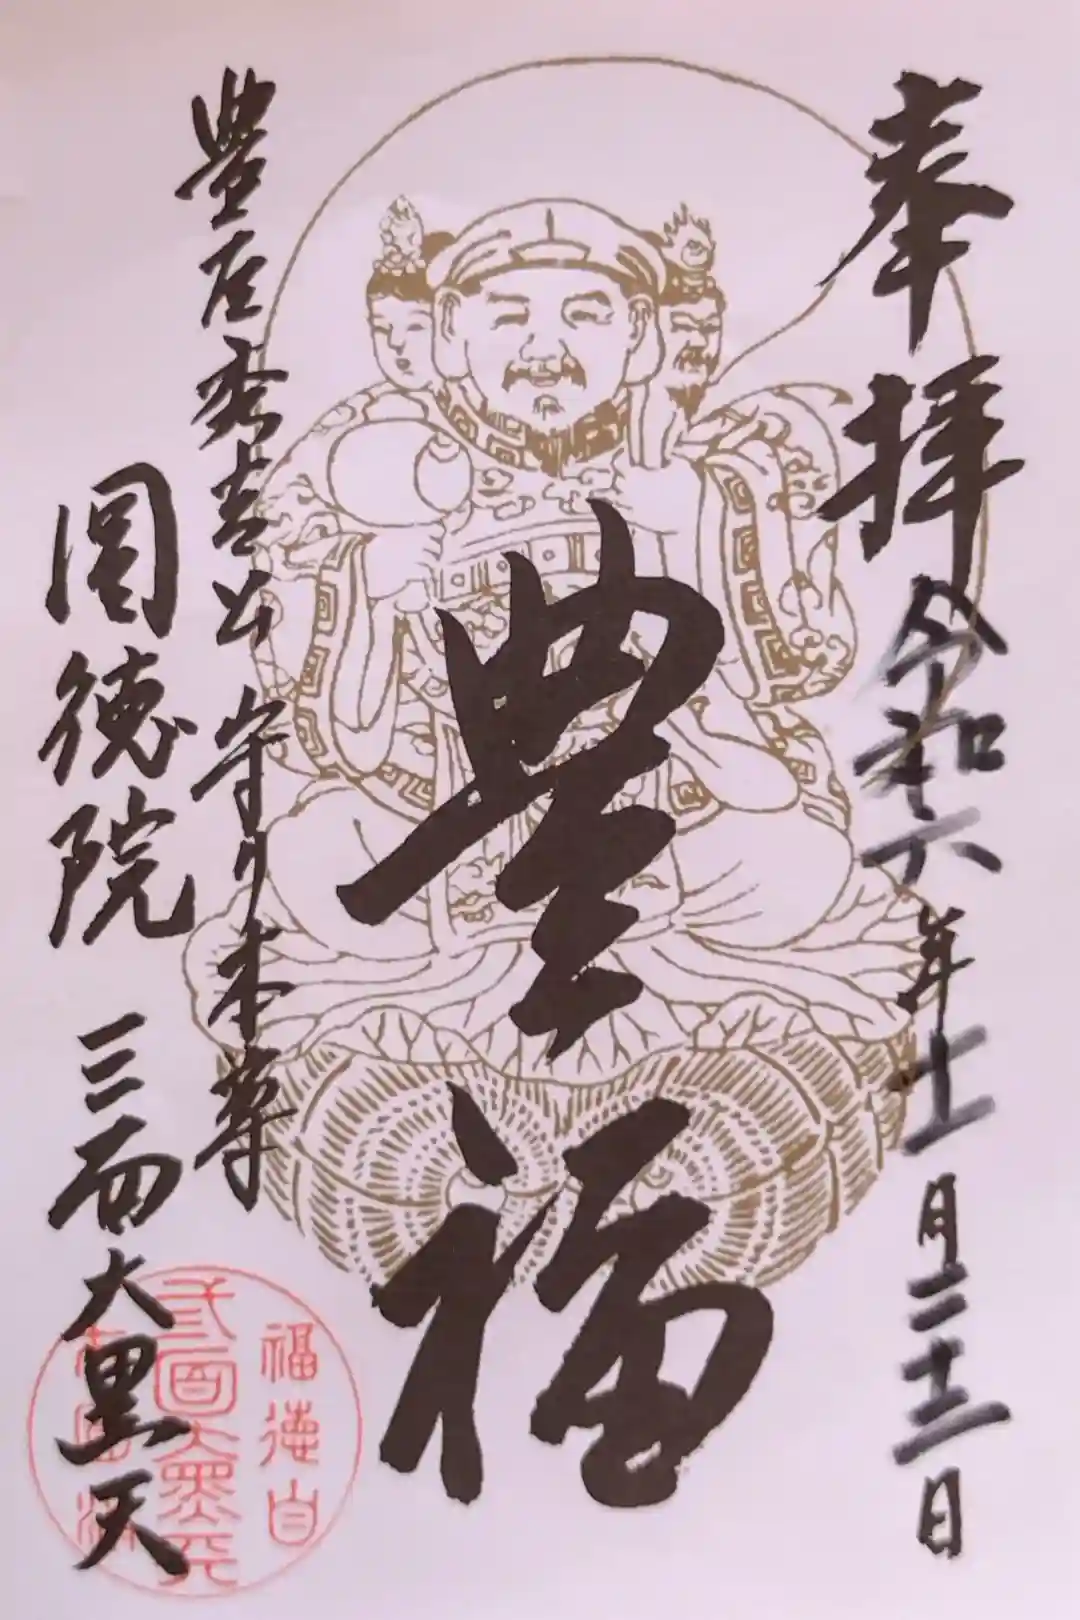 奉拝 令和六年十一月二十三日
豊福
豊臣秀吉公 守り本尊
圓徳院 三面大黒天
福徳自
弎面大黒天